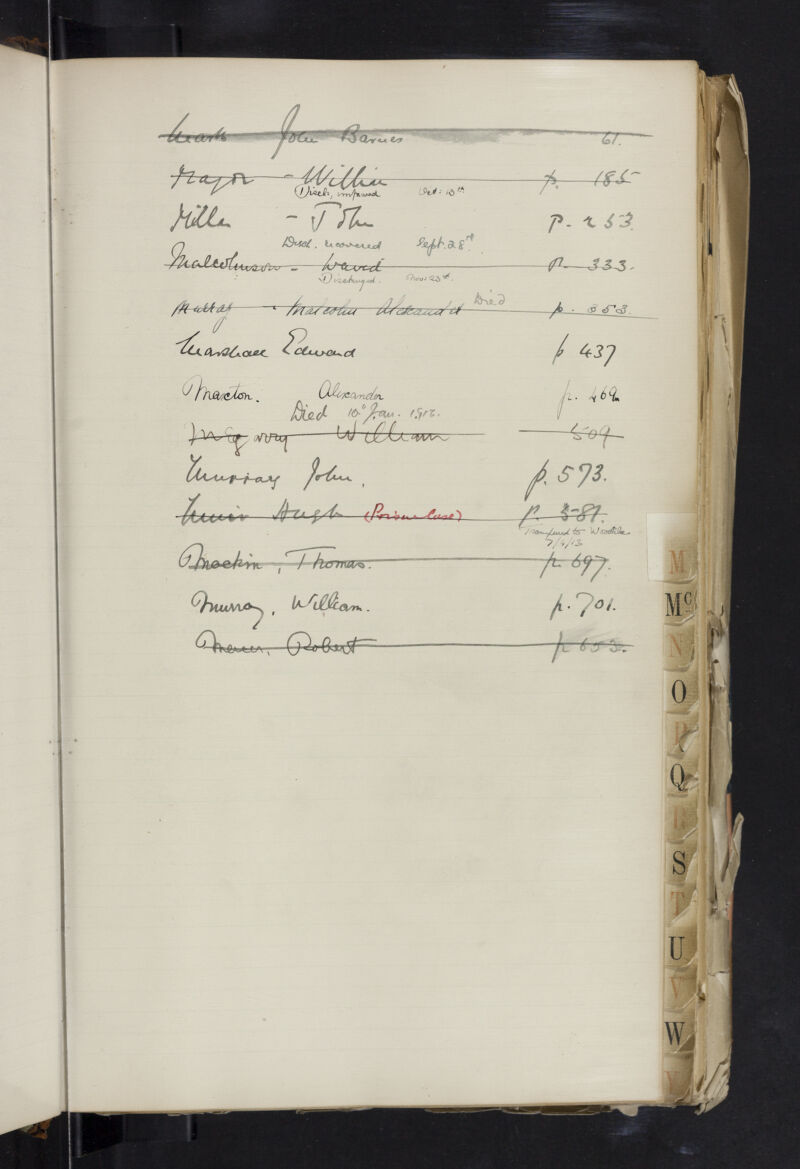 Mark John Barnes 61.
Major - William p. 185
Disch. improved Oct: 10th
Miller - John p. 253.
Disch. recovered Sept. 28th
Malcolmson - David p. 333.
Discharged. Nov: 23rd.
Murray - Malcolm Alexander Died p. 353.
Marshall Edward p 437
Maxton. Alexander p. 469
Died 10th Jan. 1912.
William 509
Murray John. p. 573.
Muir Hugh (Prison Case) p. 581.
Transferred to Woodilee
7/4/13
Mackin, Thomas. p. 697.
Murray, William. p. 701.
Robert p 653.
M
Mc
N
O
P
Q
R
S
T
U
V
W
Y